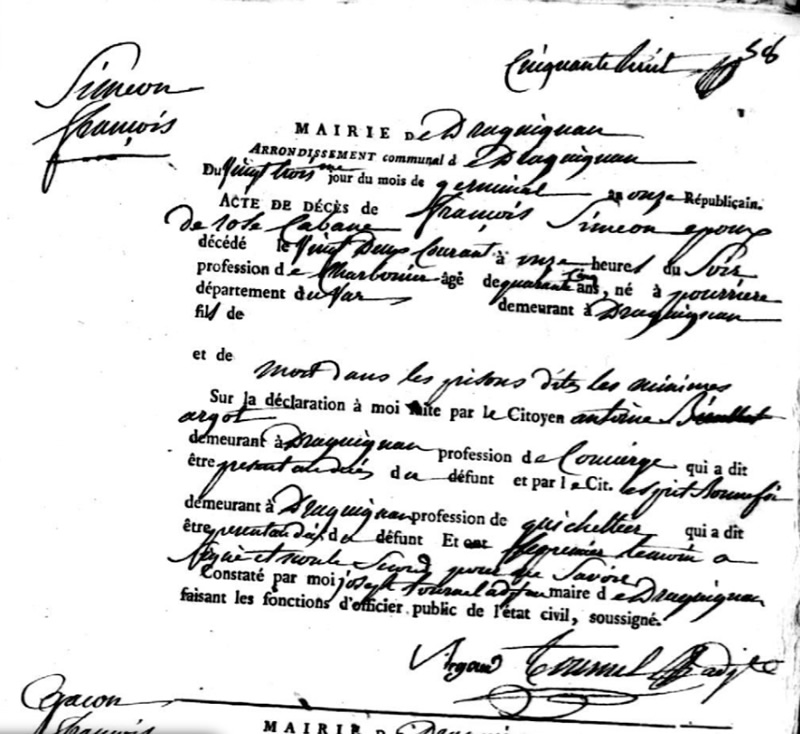 Cinquante huit 58
Simeon
françois
MAIRIE De Draguignan
ARRONDISSEMENT communal de Draguignan
Du Vingt trois me jour du mois de germinal an onze Républiçain.
ACTE DE DÉCÈS de françois Simeon epoux
de rose Cabane
décédé le Vingt Deux Courant à onze heures du Soir
profession de Charbonier âgé de quarante Cinq ans, né à pourriere
département du Var demeurant à Draguignan
fils de
et de
mort dans les prisons dites les minimes
Sur la déclaration à moi faite par le Citoyen antoine
argot
demeurant à Draguignan profession de Concierge qui a dit
être present au décès du défunt et par le Cit. esprit bonnefoi
demeurant à Draguignan profession de guichettier qui a dit
être present au décès du défunt Et le premier temoin a
signé et non le Second pour ne Savoir
Constaté par moi joseph tournel adjt au maire de Draguignan
faisant les fonctions d'officier public de l'état civil, soussigné.
Argaud Tournel adjt
Gacon
françois
MAIRIE De Draguignan